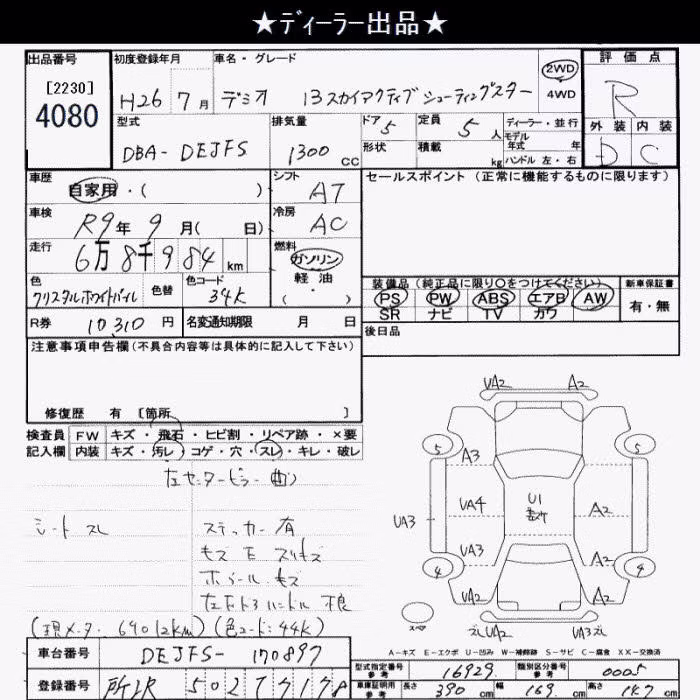 ★ディーラー出品★
出品番号
[2230]
4080
初度登録年月
H26 7月
車名・グレード
デミオ 13スカイアクティブ シューティングスター
2WD
4WD
評価点
R
外装 内装
D C
型式
DBA-DEJFS
排気量
1300 cc
ドア 5
形状
定員 5 人
積載 kg
ディーラー・並行
モデル年式 年
ハンドル 左・右
車歴
自家用・( )
シフト
AT
車検
R9年 9月( 日)
冷房
AC
走行
6万8千984 km
燃料
ガソリン
軽油
( ・ )
色
クリスタルホワイトパール
色替
色コード
34K
R券 10310 円
名変通知期限 月 日
セールスポイント (正常に機能するものに限ります)
装備品 (純正品に限り○をつけてください)
PS PW ABS エアB AW
SR ナビ TV カワ
新車保証書
有・無
後日品
注意事項申告欄(不具合内容等は具体的に記入して下さい)
修復歴 有 [箇所 ]
検査員記入欄
FW キズ・飛石・ヒビ割・リペア跡・×要
内装 キズ・汚レ・コゲ・穴・スレ・キレ・破レ
左センターピラー曲
シートスレ
ステッカー有
キズ E スリキズ
ホイールキズ
ハンドル 不良
(現メータ 69012km) (色コード:44K)
UA2 A2
5 5
A3
UA3 UA4 U1 A2
UA3 A2
4 4
UA2 A2
スレUA2 UA3スレ
スペア
A-キズ E-エクボ U-凹み W-補修跡 S-サビ C-腐食 XX-交換済
車台番号 DEJFS-170897
登録番号
型式指定番号 参考 16929
類別区分番号 参考 0005
車庫証明用 参考
長さ 390 cm
幅 169 cm
高さ 147 cm